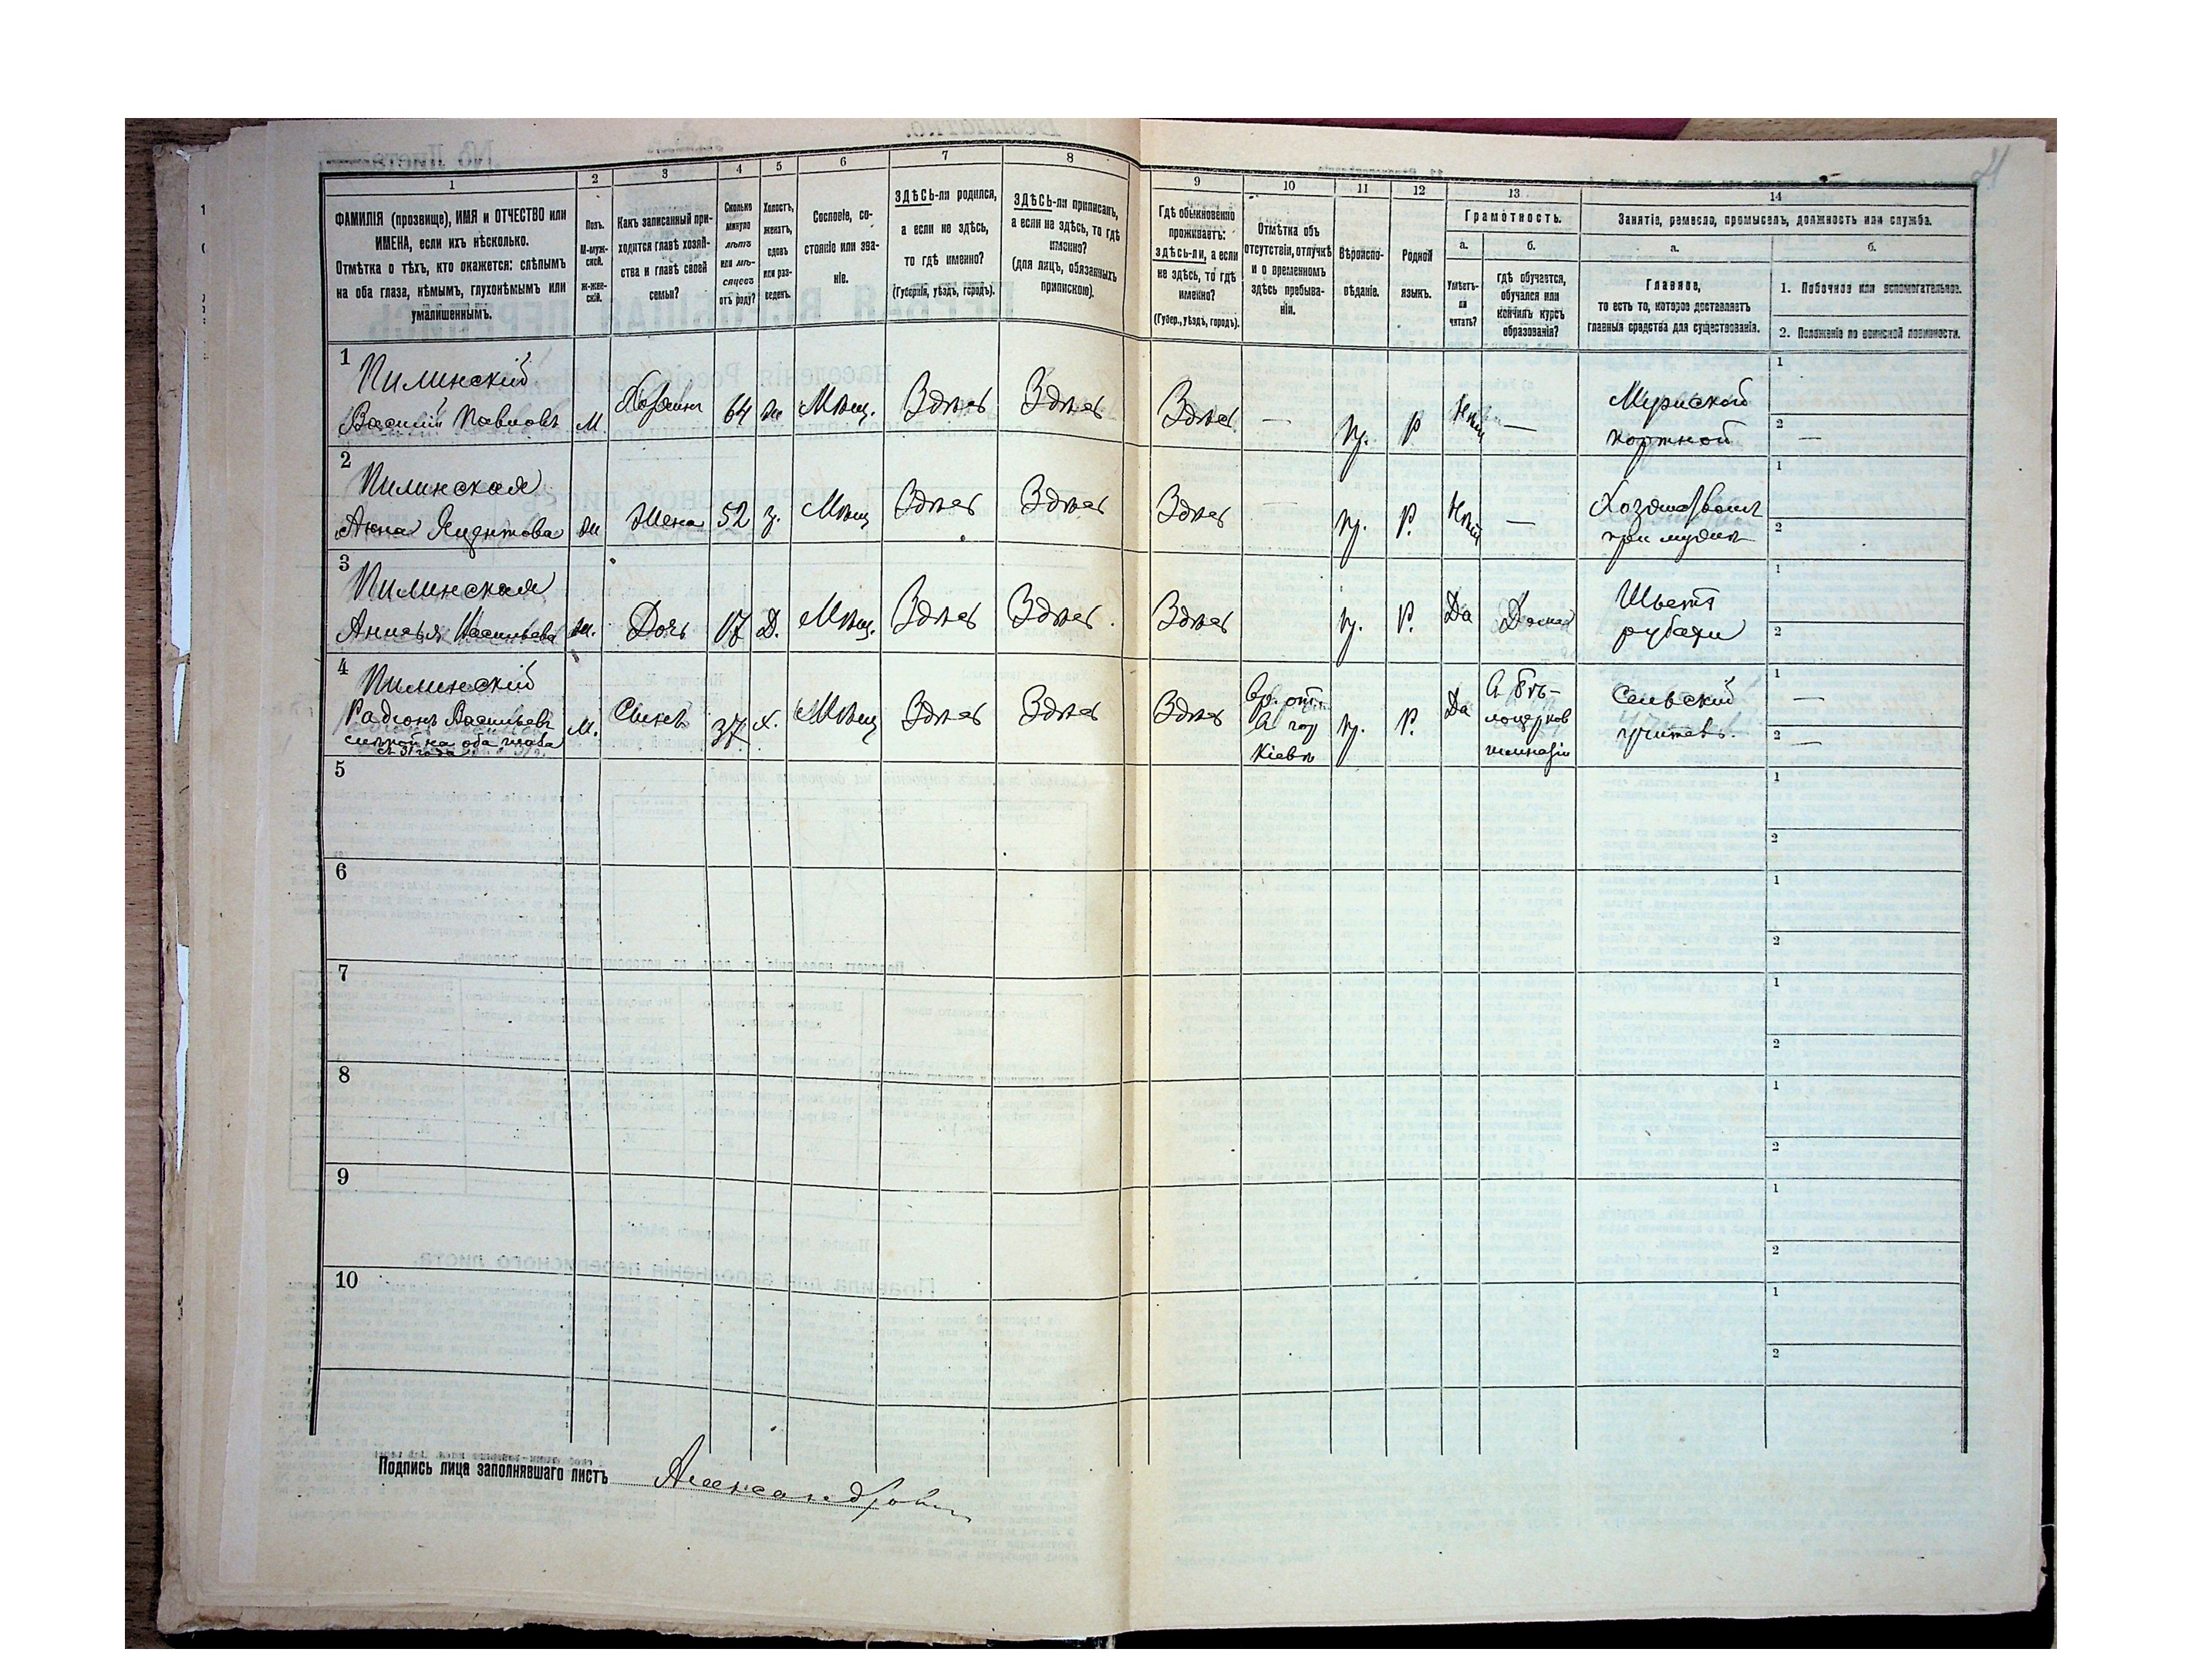 1
2
3
4
5
6
7
8
9
10
11
12
13
14
ФАМИЛІЯ (прозвище), ИМЯ и ОТЧЕСТВО или
ИМЕНА, если ихъ нѣсколько.
Отмѣтка о тѣхъ, кто окажется: слѣпымъ
на оба глаза, нѣмымъ, глухонѣмымъ или
умалишеннымъ.
Полъ.
М-муж-
ской.
Ж-жен-
скій.
Какъ записанный при-
ходится главѣ хозяй-
ства и главѣ своей
семьи?
Сколько
минуло
лѣтъ
или мѣ-
сяцевъ
отъ роду?
Холостъ,
женатъ,
вдовъ
или раз-
веденъ.
Сословіе, со-
стояніе или зва-
ніе.
ЗДѢСЬ-ли родился,
а если не здѣсь,
то гдѣ именно?
(Губернія, уѣздъ, городъ).
ЗДѢСЬ-ли приписанъ,
а если не здѣсь, то гдѣ
именно?
(для лицъ, обязанныхъ
припискою).
Гдѣ обыкновенно
проживаетъ:
здѣсь-ли, а если
не здѣсь, то гдѣ
именно?
(Губер., уѣздъ, городъ).
Отмѣтка объ
отсутствіи, отлучкѣ
и о временномъ
здѣсь пребыва-
ніи.
Вѣроиспо-
вѣданіе.
Родной
языкъ.
Грамотность.
а.
Умѣетъ-
ли
читать?
б.
гдѣ обучается,
обучался или
кончилъ курсъ
образованія?
Занятіе, ремесло, промыселъ, должность или служба.
а.
Главное,
то есть то, которое доставляетъ
главныя средства для существованія.
б.
1. Побочное или вспомогательное.
2. Положеніе по воинской повинности.
1
Пилинскій
Василій Павловъ
М.
Хозяинъ
64
Мѣщ.
Здѣсь
Здѣсь
Здѣсь
—
пр.
Р
—
портной
1
2
—
2
Пилинская
Анна
Жена
52
з.
Мѣщ
Здѣсь
Здѣсь
Здѣсь
—
пр.
Р.
—
при мужѣ
1
2
3
Пилинская
Анисья Васильева
ж.
Дочь
17
Д.
Мѣщ.
Здѣсь
Здѣсь.
Здѣсь
пр.
Р.
Да
Дома
Шьетъ
рубахи
1
2
4
Пилинскій
Радіонъ Васильевъ
слѣпой на оба глаза
М.
Сынъ
37
х.
Мѣщ
Здѣсь
Здѣсь
Здѣсь
Вр. отл.
Кіевѣ
пр.
Р.
Да
в Бѣ-
лоцерков
гимназіи
Сельский
учитель.
1
—
2
—
5
1
2
6
1
2
7
1
2
8
1
2
9
1
2
10
1
2
Подпись лица заполнявшаго листъ